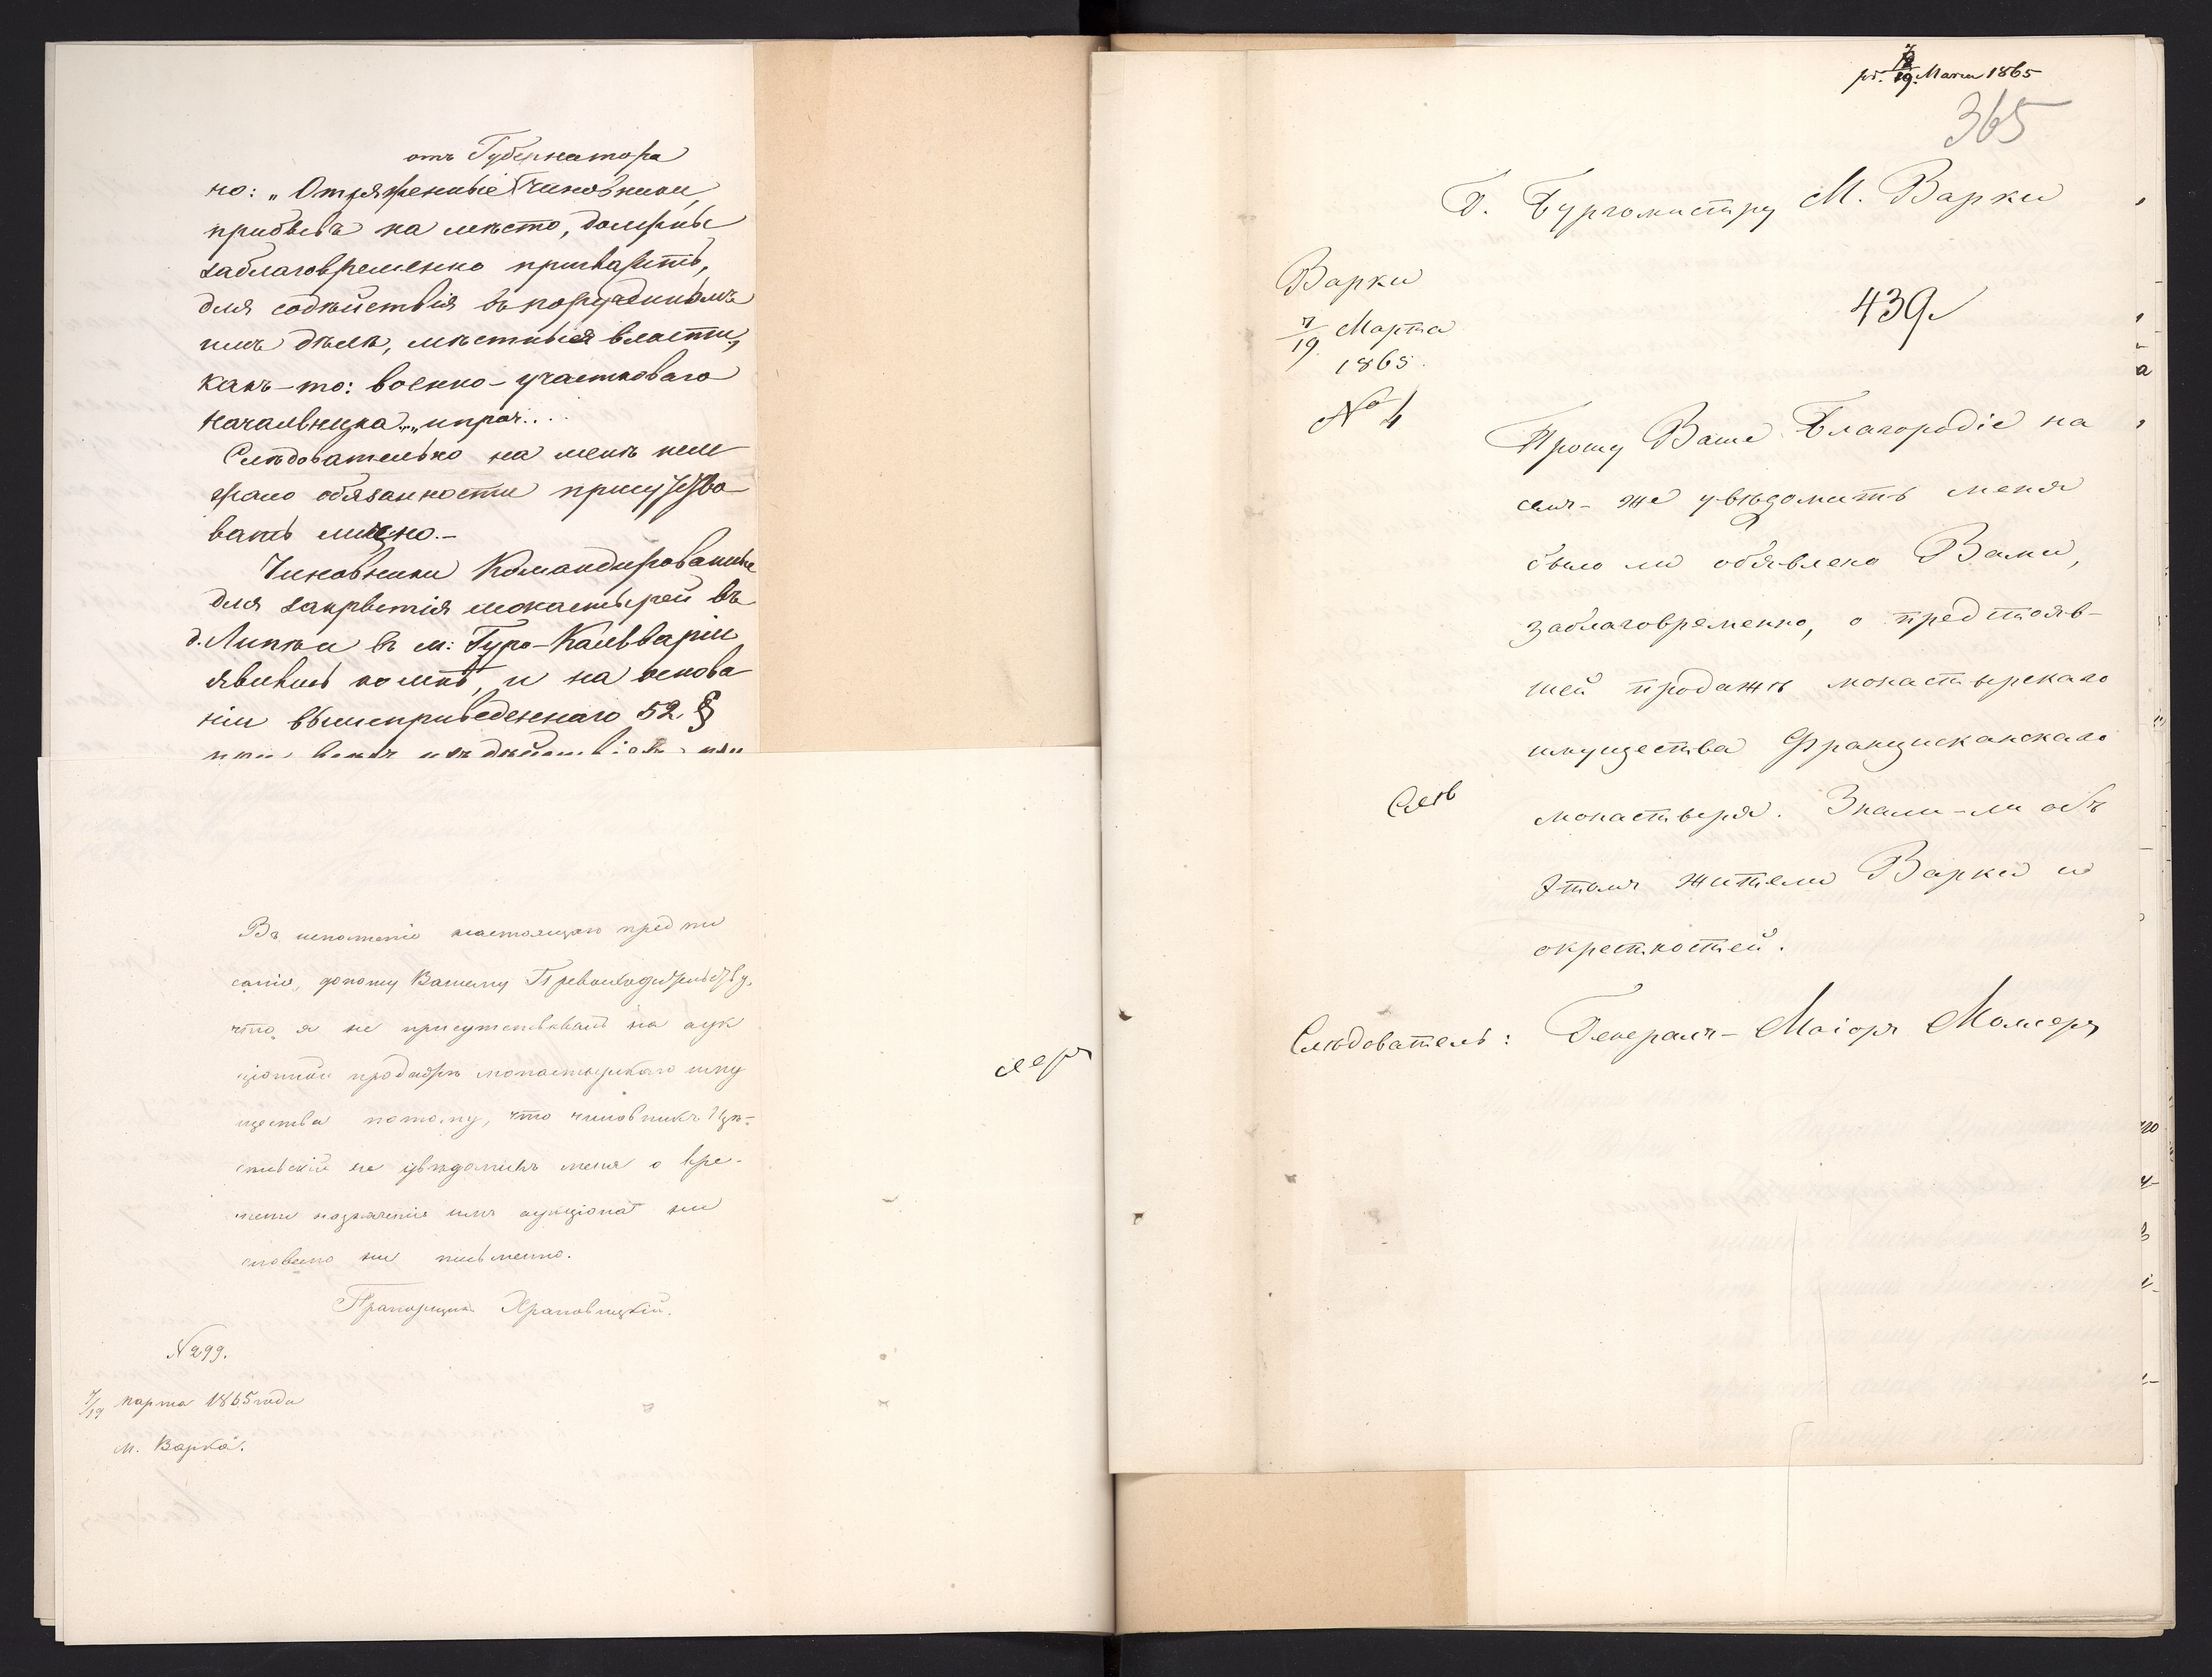 отъ Губернатора
но: „Отряженные чиновники,
прибывъ на мѣсто, должны
заблаговременно пригласить,
для содѣйствія въ порученномъ
имъ дѣлѣ, мѣстныя власти,
какъ-то: военно-участковаго
начальника„„ и проч...
Слѣдовательно на менѣ неле
жало обязанности присутство-
вать лично.-
Чиновники командированные
для закрытія монастырей въ
д. Липка въ м: Гура-Кальваріи
явились ко мнѣ, и на основа
ніи вышеприведеннаго 52. §
Въ исполненіе настоящаго предпи
санія, доношу Вашему Превосходительству,
что я не присутствовалъ на аук
ціонной продажѣ монастырскаго иму
щества потому, что чиновникъ
не увѣдомилъ меня о вре-
мени назначенія имъ аукціона ни
словесно ни письменно.
Прапорщикъ Храповицкій.
N 299.
7/19 марта 1865 года
м. Варка.
pr. 7/19. Marca 1865
365
Г. Бургомистру М. Варки
Варки
7/19. Марта
1865.
№ 4
439
Прошу Ваше Благородіе на
семъ-же увѣдомить меня
было ли объявлено Вами,
заблаговременно, о предстояв-
шей продажѣ монастырскаго
имущества Францисканскаго
монастыря. Знали-ли объ
этомъ жители Варки и
окрестностей.
Слѣдователь: Генералъ-Маіоръ